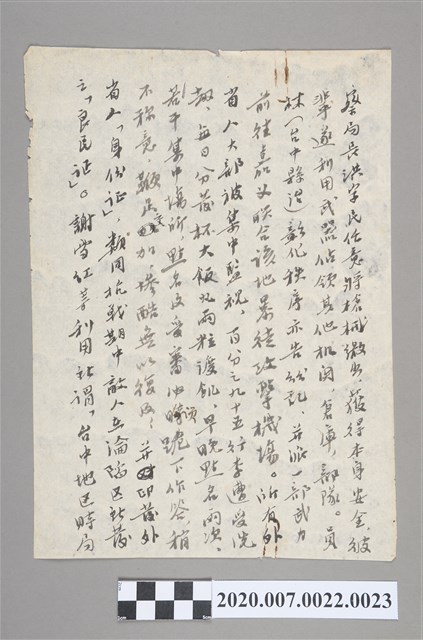 察局長洪字民任意將槍械繳出，獲得本身安全，彼
輩遂利用武器佔領其他机関、倉庫、部隊。員
林（台中縣）迄彰化秩序亦告紛乱，并派一部武力
前往嘉义联合該地暴徒攻擊機場。所有外
省人大部被集中監視，百分之九十五行李遭受洗
劫，每日分發杯大飯丸兩粒渡飢，早晚點名兩次，
若干集中場所，點名及受審必須跪下作答，稍
不称意鞭在加，慘酷無以復加，并印發外
省人「身份証」，類同抗戰期中敵人在淪陷区所發
之「良民証」。謝雪红等利用所謂「台中地区時局
2020.007.0022.0023